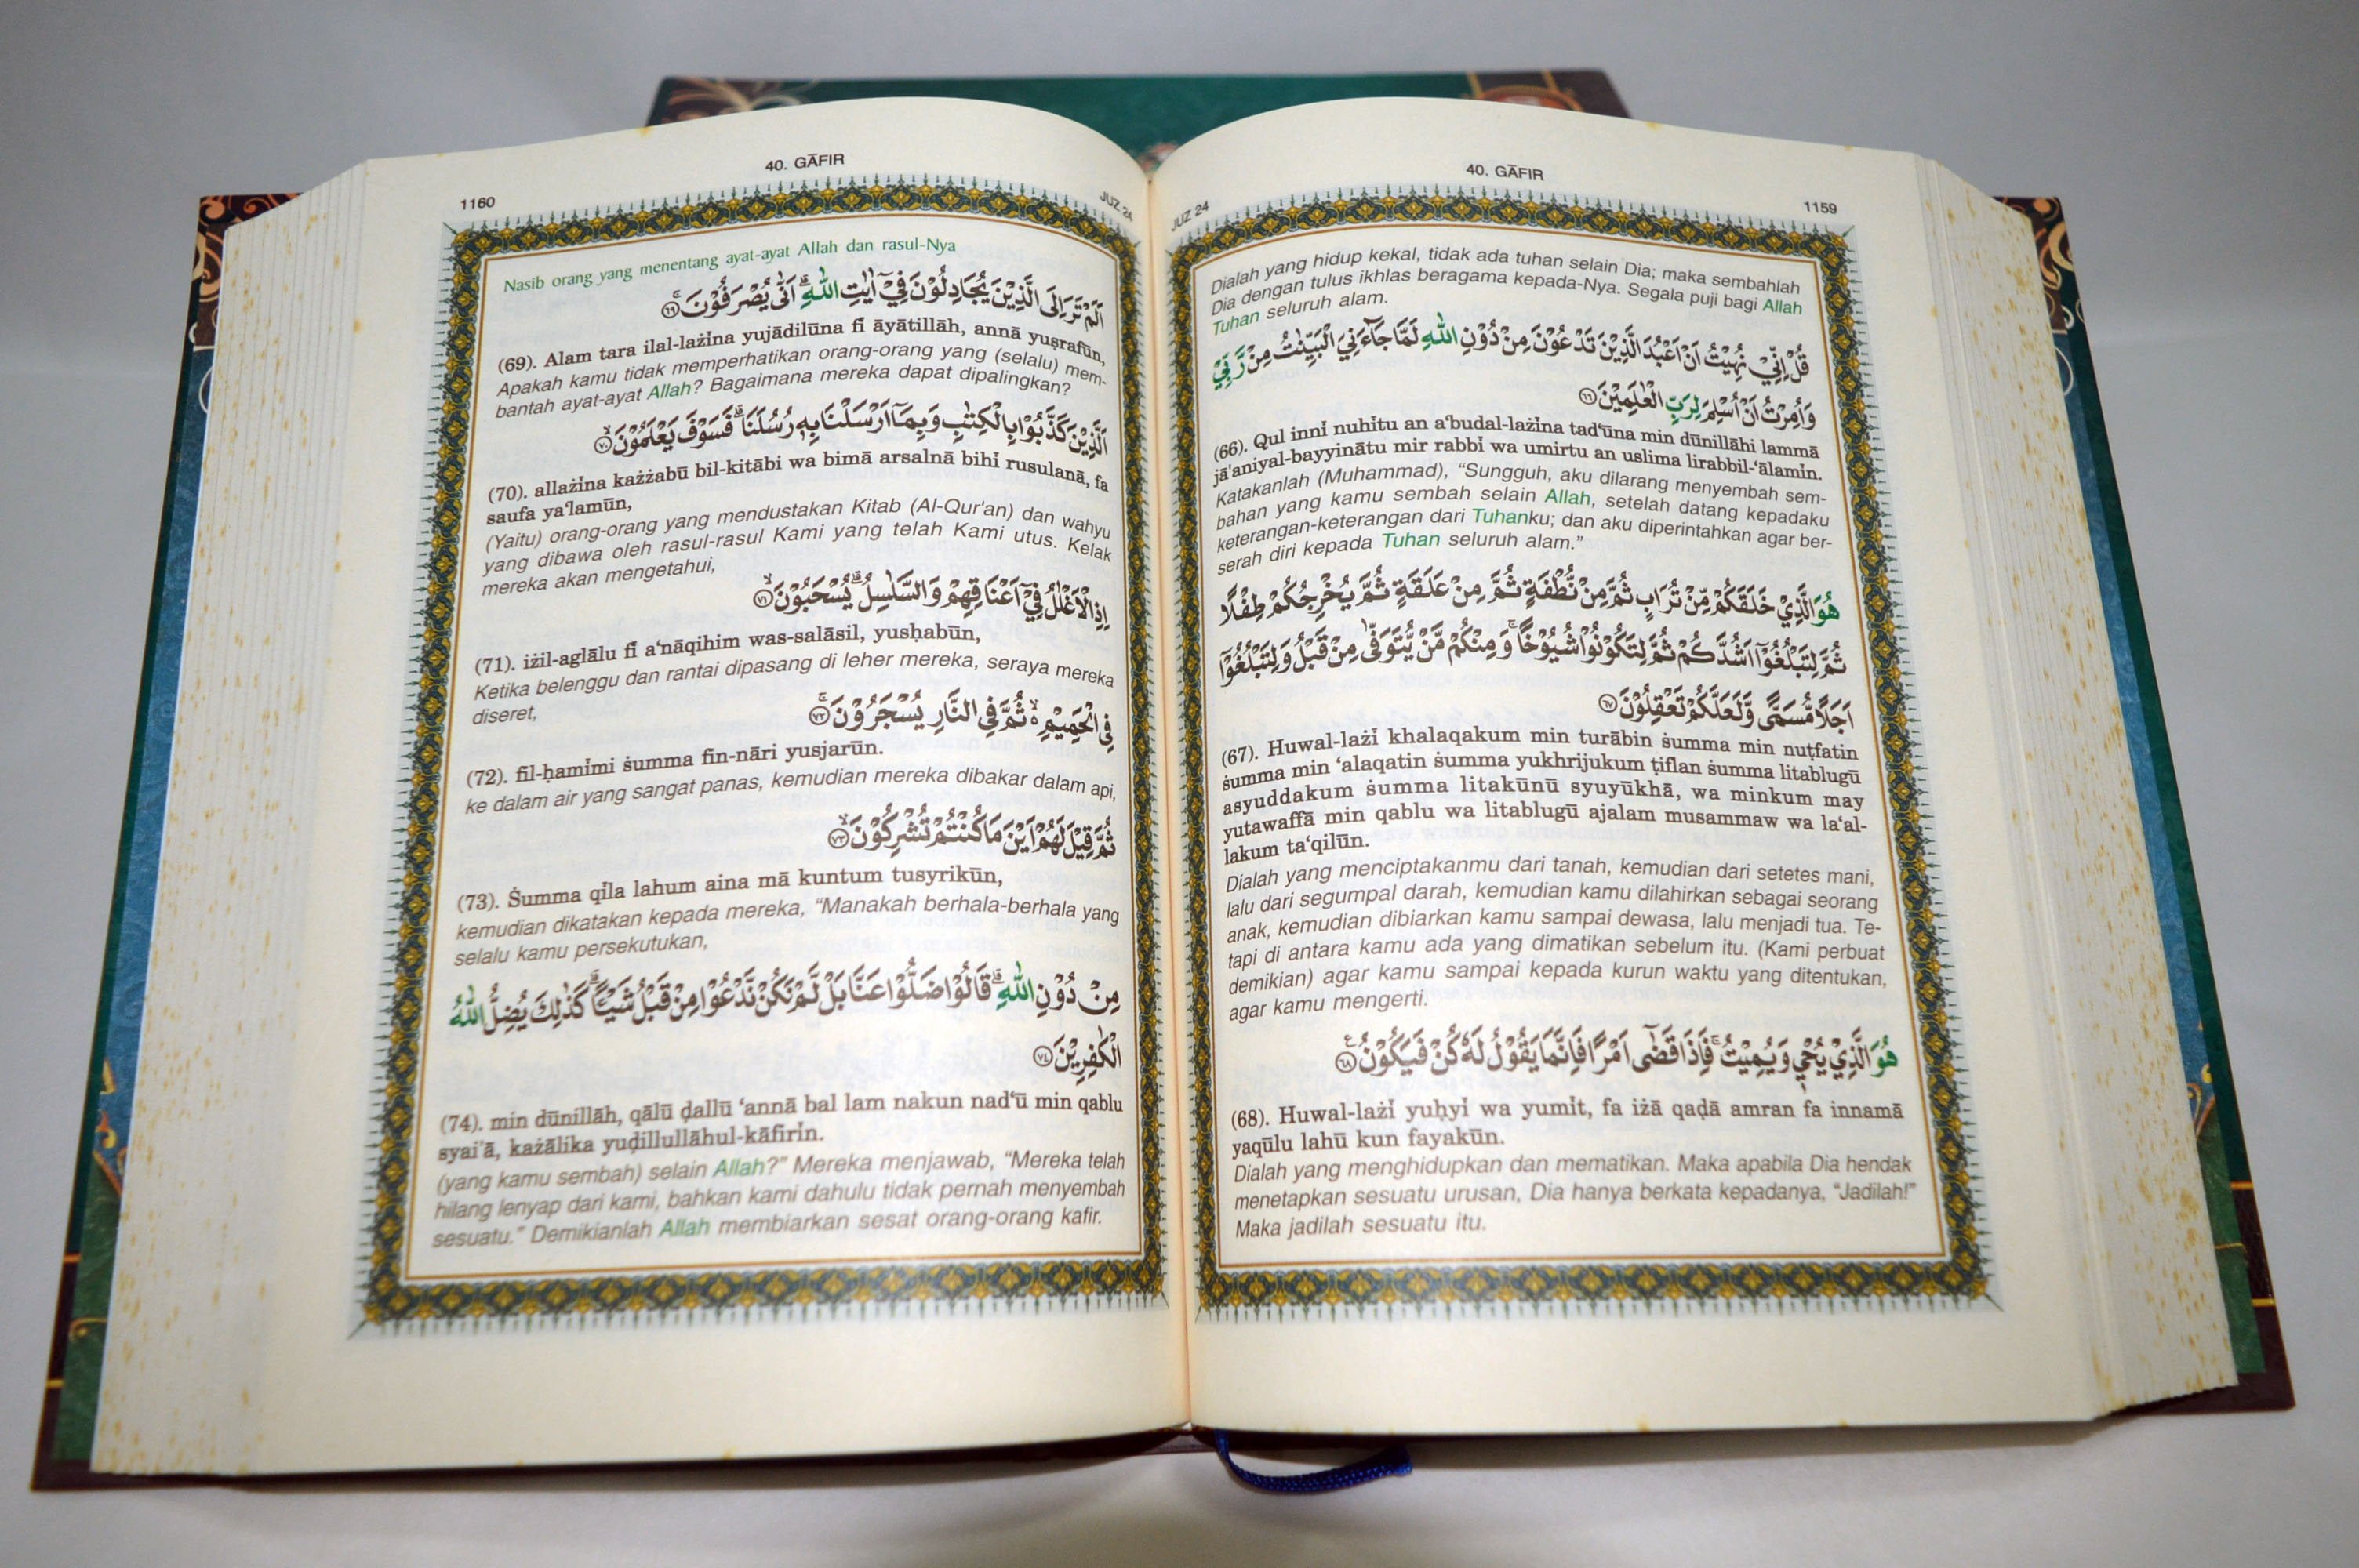 40. GĀFIR
1159
JUZ 24
Dialah yang hidup kekal, tidak ada tuhan selain Dia; maka sembahlah
Dia dengan tulus ikhlas beragama kepada-Nya. Segala puji bagi Allah
Tuhan seluruh alam.
قُلْ اِنِّيْ نُهِيْتُ اَنْ اَعْبُدَ الَّذِيْنَ تَدْعُوْنَ مِنْ دُوْنِ اللّٰهِ لَمَّا جَاۤءَنِيَ الْبَيِّنٰتُ مِنْ رَّبِّيْ
وَاُمِرْتُ اَنْ اُسْلِمَ لِرَبِّ الْعٰلَمِيْنَ ٦٦
(66). Qul innī nuhītu an a‘budal-lażīna tad‘ūna min dūnillāhi lammā
jā'aniyal-bayyinātu mir rabbī wa umirtu an uslima lirabbil-‘ālamīn.
Katakanlah (Muhammad), “Sungguh, aku dilarang menyembah sem-
bahan yang kamu sembah selain Allah, setelah datang kepadaku
keterangan-keterangan dari Tuhanku; dan aku diperintahkan agar ber-
serah diri kepada Tuhan seluruh alam.”
هُوَ الَّذِيْ خَلَقَكُمْ مِّنْ تُرَابٍ ثُمَّ مِنْ نُّطْفَةٍ ثُمَّ مِنْ عَلَقَةٍ ثُمَّ يُخْرِجُكُمْ طِفْلًا
ثُمَّ لِتَبْلُغُوْٓا اَشُدَّكُمْ ثُمَّ لِتَكُوْنُوْا شُيُوْخًا ۚوَمِنْكُمْ مَّنْ يُّتَوَفّٰى مِنْ قَبْلُ وَلِتَبْلُغُوْٓا
اَجَلًا مُّسَمًّى وَّلَعَلَّكُمْ تَعْقِلُوْنَ ٦٧
(67). Huwal-lażī khalaqakum min turābin ṡumma min nuṭfatin
ṡumma min ‘alaqatin ṡumma yukhrijukum ṭiflan ṡumma litablugū
asyuddakum ṡumma litakūnū syuyūkhā, wa minkum may
yutawaffā min qablu wa litablugū ajalam musammaw wa la‘al-
lakum ta‘qilūn.
Dialah yang menciptakanmu dari tanah, kemudian dari setetes mani,
lalu dari segumpal darah, kemudian kamu dilahirkan sebagai seorang
anak, kemudian dibiarkan kamu sampai dewasa, lalu menjadi tua. Te-
tapi di antara kamu ada yang dimatikan sebelum itu. (Kami perbuat
demikian) agar kamu sampai kepada kurun waktu yang ditentukan,
agar kamu mengerti.
هُوَ الَّذِيْ يُحْيٖ وَيُمِيْتُۚ فَاِذَا قَضٰٓى اَمْرًا فَاِنَّمَا يَقُوْلُ لَهٗ كُنْ فَيَكُوْنُ ࣖ ٦٨
(68). Huwal-lażī yuḥyī wa yumīt, fa iżā qaḍā amran fa innamā
yaqūlu lahū kun fayakūn.
Dialah yang menghidupkan dan mematikan. Maka apabila Dia hendak
menetapkan sesuatu urusan, Dia hanya berkata kepadanya, “Jadilah!”
Maka jadilah sesuatu itu.
40. GĀFIR
1160
JUZ 24
Nasib orang yang menentang ayat-ayat Allah dan rasul-Nya
اَلَمْ تَرَ اِلَى الَّذِيْنَ يُجَادِلُوْنَ فِيْٓ اٰيٰتِ اللّٰهِ ۗاَنّٰى يُصْرَفُوْنَۚ ٦٩
(69). Alam tara ilal-lażīna yujādilūna fī āyātillāh, annā yuṣrafūn,
Apakah kamu tidak memperhatikan orang-orang yang (selalu) mem-
bantah ayat-ayat Allah? Bagaimana mereka dapat dipalingkan?
الَّذِيْنَ كَذَّبُوْا بِالْكِتٰبِ وَبِمَآ اَرْسَلْنَا بِهٖ رُسُلَنَا ۗفَسَوْفَ يَعْلَمُوْنَۙ ٧٠
(70). allażīna każżabū bil-kitābi wa bimā arsalnā bihī rusulanā, fa
saufa ya‘lamūn,
(Yaitu) orang-orang yang mendustakan Kitab (Al-Qur'an) dan wahyu
yang dibawa oleh rasul-rasul Kami yang telah Kami utus. Kelak
mereka akan mengetahui,
اِذِ الْاَغْلٰلُ فِيْٓ اَعْنَاقِهِمْ وَالسَّلٰسِلُۗ يُسْحَبُوْنَۙ ٧١
(71). iżil-aglālu fī a‘nāqihim was-salāsil, yusḥabūn,
Ketika belenggu dan rantai dipasang di leher mereka, seraya mereka
diseret,
فِى الْحَمِيْمِ ەۙ ثُمَّ فِى النَّارِ يُسْجَرُوْنَۚ ٧٢
(72). fil-ḥamīmi ṡumma fin-nāri yusjarūn.
ke dalam air yang sangat panas, kemudian mereka dibakar dalam api,
ثُمَّ قِيْلَ لَهُمْ اَيْنَ مَا كُنْتُمْ تُشْرِكُوْنَۙ ٧٣
(73). Ṡumma qīla lahum aina mā kuntum tusyrikūn,
kemudian dikatakan kepada mereka, “Manakah berhala-berhala yang
selalu kamu persekutukan,
مِنْ دُوْنِ اللّٰهِ ۗقَالُوْا ضَلُّوْا عَنَّا بَلْ لَّمْ نَكُنْ نَّدْعُوْا مِنْ قَبْلُ شَيْـًٔاۗ كَذٰلِكَ يُضِلُّ اللّٰهُ
الْكٰفِرِيْنَ ٧٤
(74). min dūnillāh, qālū ḍallū ‘annā bal lam nakun nad‘ū min qablu
syai'ā, każālika yuḍillullāhul-kāfirīn.
(yang kamu sembah) selain Allah?” Mereka menjawab, “Mereka telah
hilang lenyap dari kami, bahkan kami dahulu tidak pernah menyembah
sesuatu.” Demikianlah Allah membiarkan sesat orang-orang kafir.